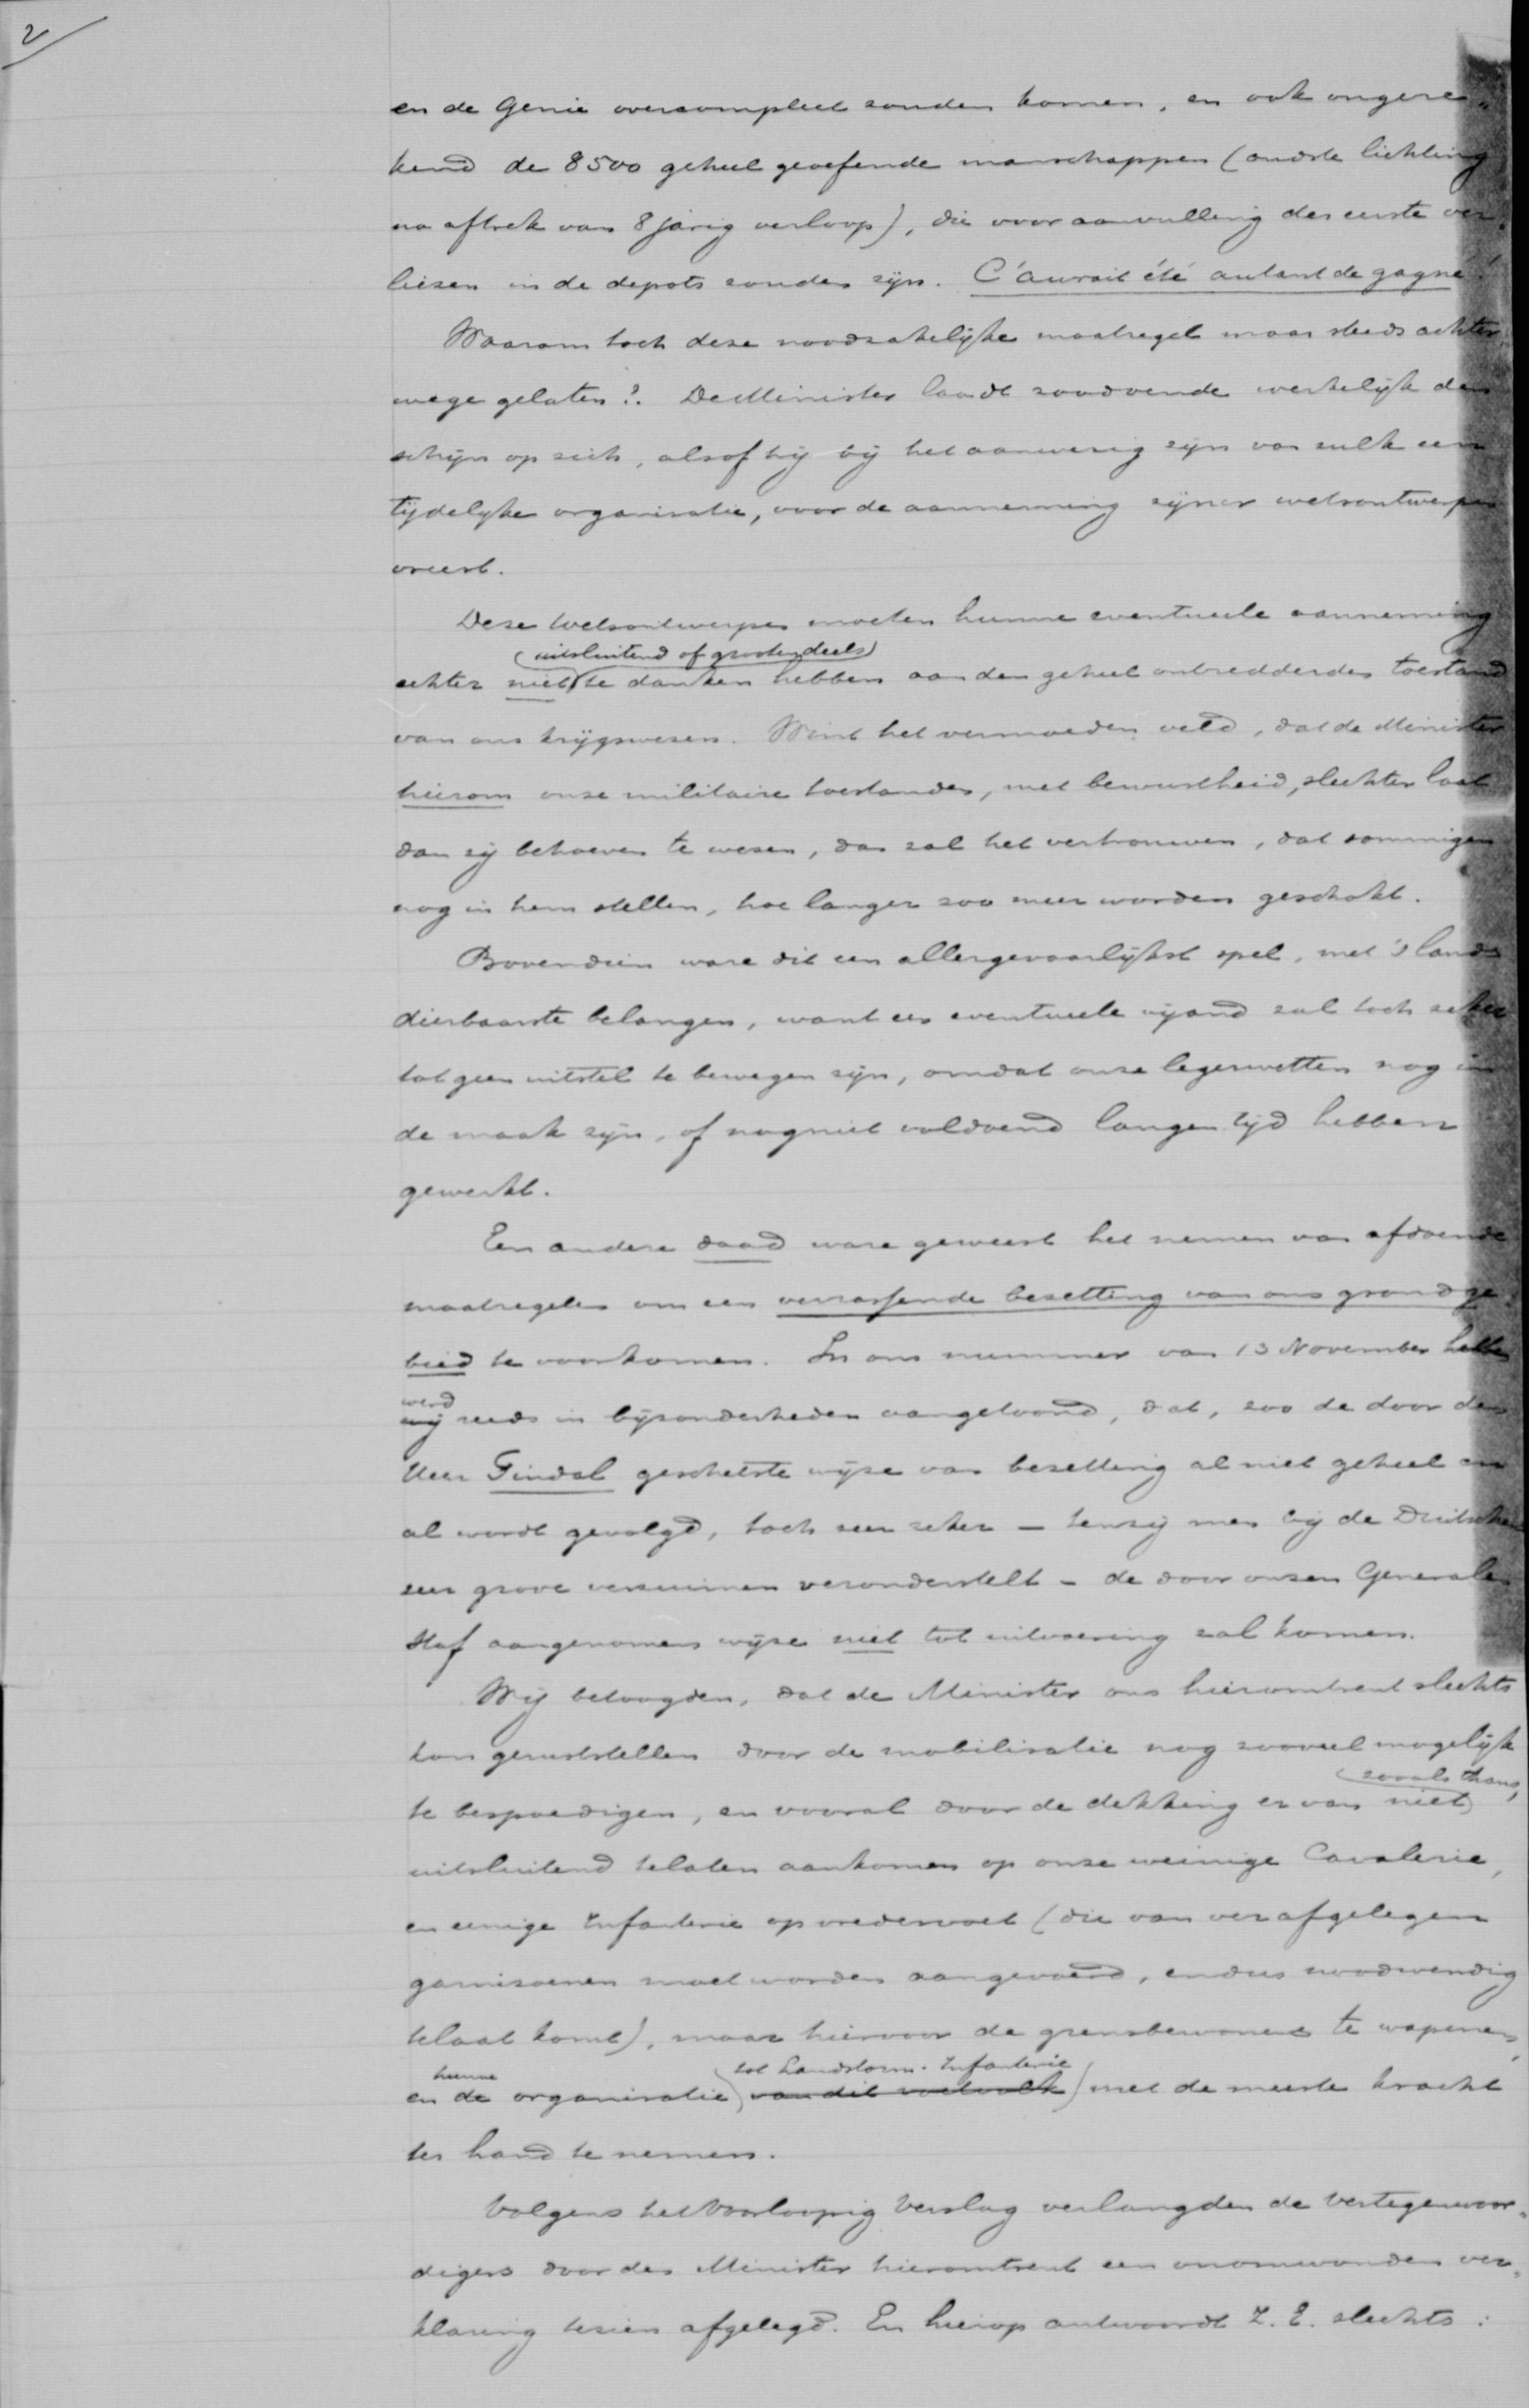 2
en de Genie overcompleet zouden komen, en ook ongere„
kend de 8500 geheel geoefende manschappen (oudste lichting
na aftrek van 8 jarig verloop), die voor aanvulling der eerste ver„
liezen in de depots zouden zijn. C'aurait été autant de gagné!
Waarom toch deze noodzakelijke maatregel maar steeds achter„
wege gelaten? De Minister laadt zoodoende werkelijk den
schijn op zich, alsof hij bij het aanwezig zijn van zulk een
tijdelijke organisatie, voor de aanneming zijner wetsontwerpen
vreest.
Deze wetsontwerpen moeten hunne eventueele aanneming
(uitsluitend of grootendeels)
echter niet te danken hebben aan den geheel ontredderden toestand
van ons krijgswezen. Wint het vermoeden veld, dat de Minister
hierom onze militaire toestanden, met bewustheid, slechter laat
dan zij behoeven te wezen, dan zal het vertrouwen, dat sommigen
nog in hem stellen, hoe langer zoo meer worden geschokt.
Bovendien ware dit een allergevaarlijkst spel, met 's lands
dierbaarste belangen, want een eventueele vijand zal toch zeker
tot geen uitstel te bewegen zijn, omdat onze legerwetten nog in
de maak zijn, of nog niet voldoend langen tijd hebben
gewerkt.
Een andere daad ware geweest het nemen van afdoende
maatregelen om een verrassende bezetting van ons grondge„
bied te voorkomen. In ons nummer van 13 November hebben
werd
wij reeds in bijzonderheden aangetoond, dat, zoo de door den
Heer Tindal geschetste wijze van bezetting al niet geheel en
al wordt gevolgd, toch zeer zeker — tenzij men bij de Duitschers
zeer grove verzuimen veronderstelt — de door onzen Generalen
Staf aangenomen wijze niet tot uitvoering zal komen.
Wij betoogden, dat de Minister ons hieromtrent slechts
kon geruststellen door de mobilisatie nog zooveel mogelijk
(zooals thans,
te bespoedigen, en vooral door de dekking er van niet)
uitsluitend te laten aankomen op onze weinige Cavalerie,
en eenige Infanterie op vredesvoet (die van ver afgelegen
garnizoenen moet worden aangevoerd, en dus noodwendig
te laat komt), maar hiervoor de grensbewoners te wapenen,
hunne (tot Landstorm-Infanterie
en de organisatie van dit voetvolk) met de meeste kracht
ter hand te nemen.
Volgens het Voorloopig Verslag verlangden de vertegenwoor„
digers door den Minister hieromtrent een onomwonden ver„
klaring te zien afgelegd. En hierop antwoordt Z. E. slechts: